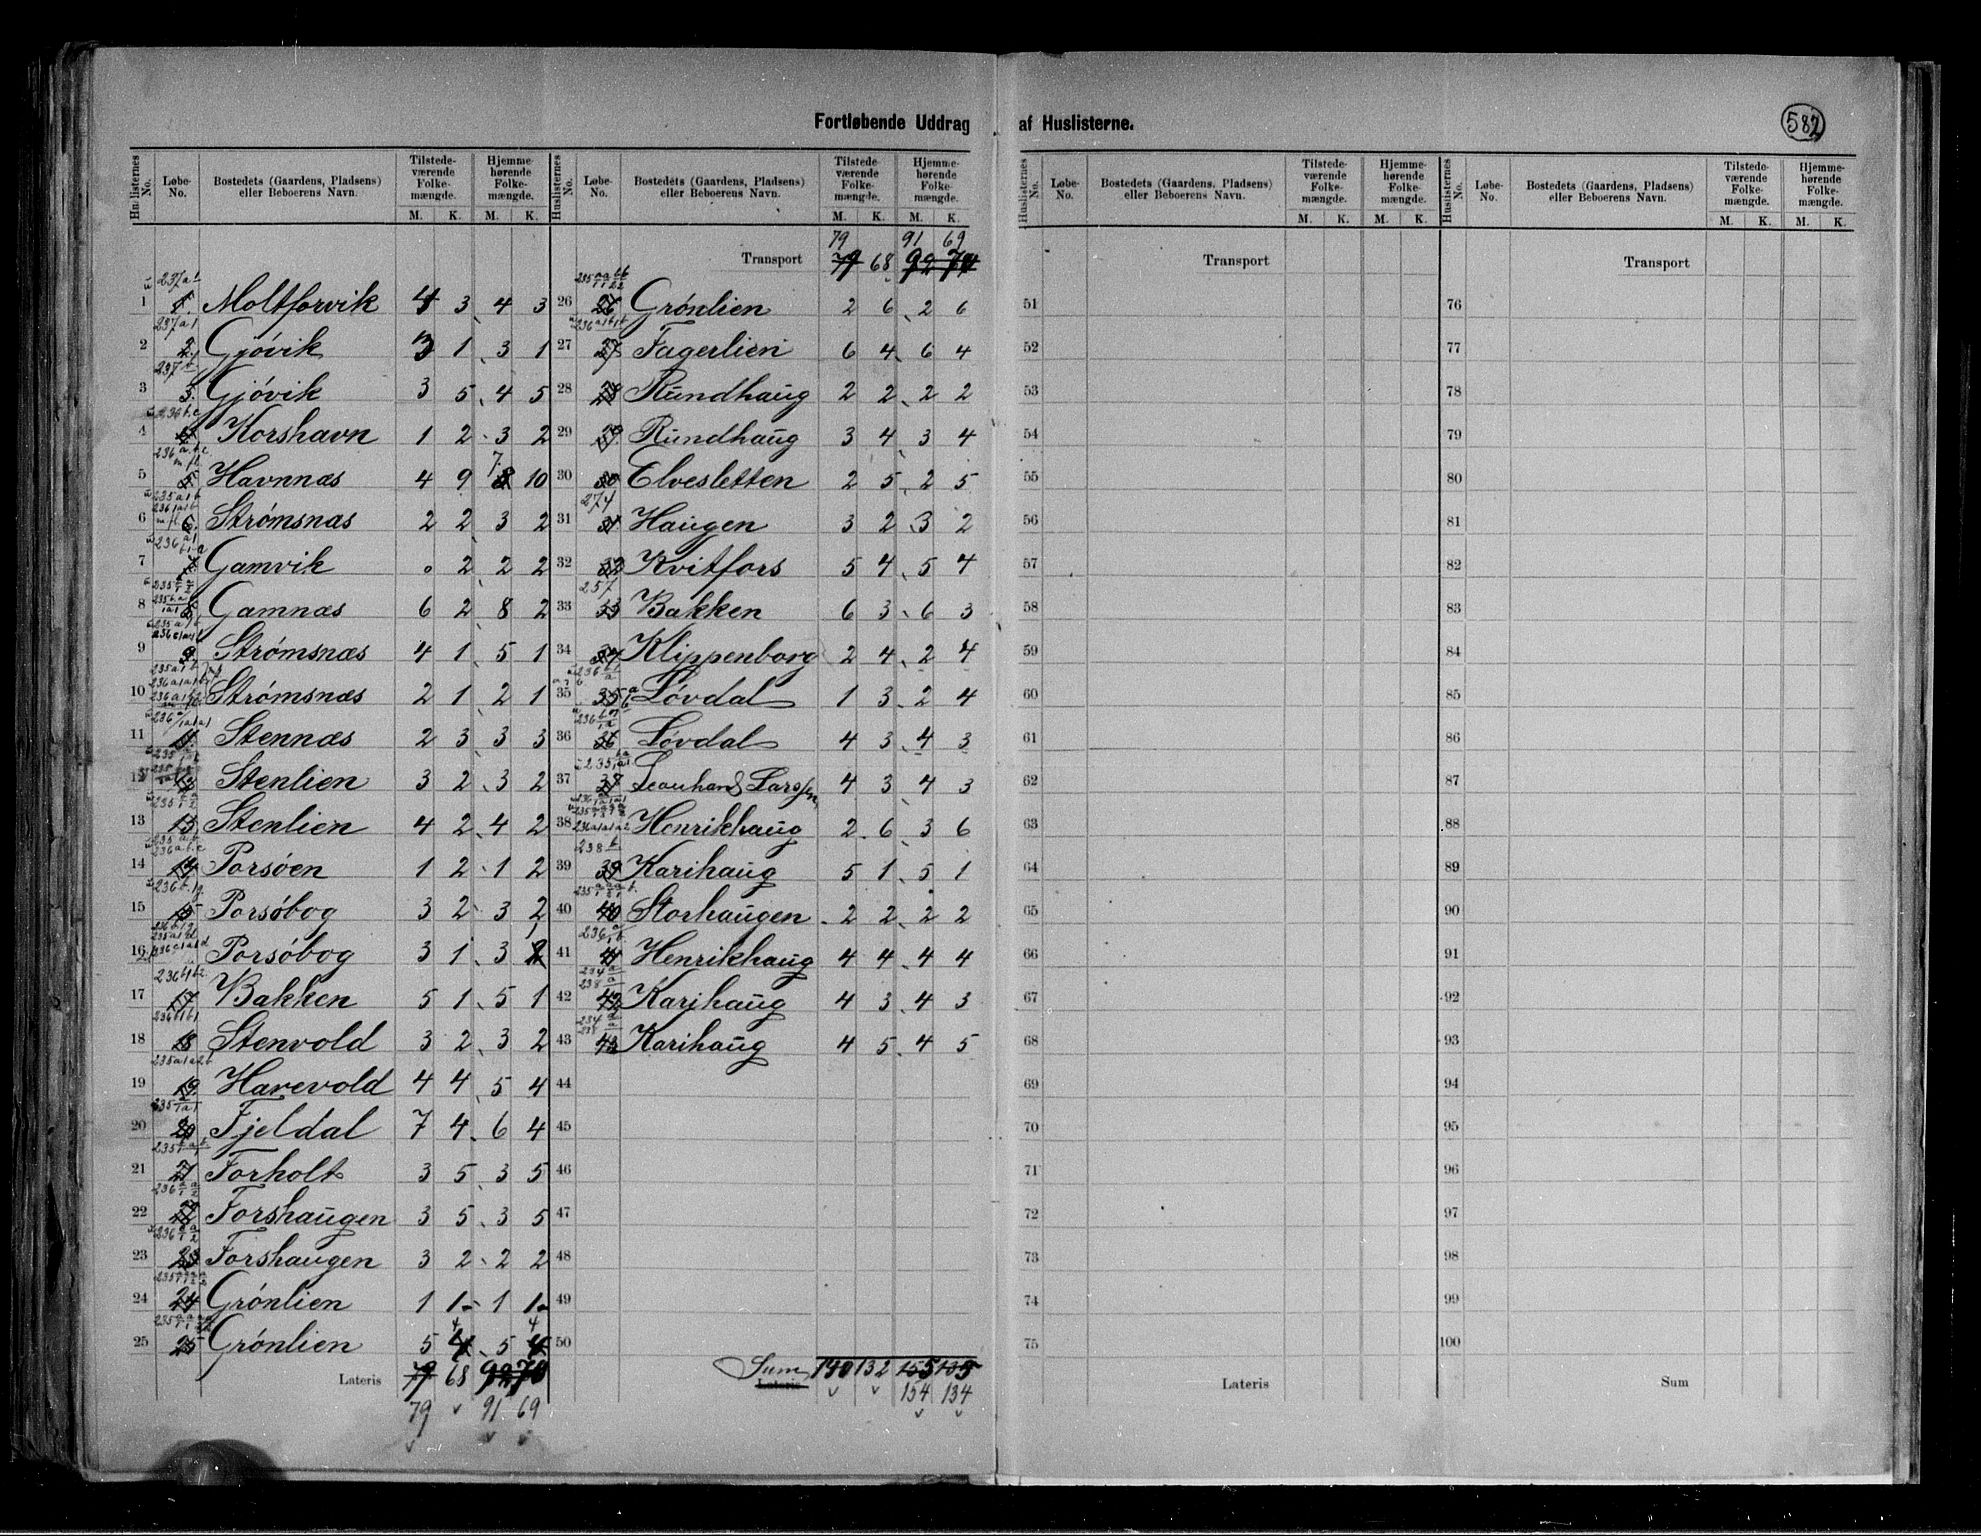 Fortløbende Uddrag af Huslisterne.
582
Huslisternes No. Løbe-No. Bostedets (Gaardens, Pladsens) eller Beboerens Navn. Tilstedeværende Folkemængde. M. K. Hjemmehørende Folkemængde. M. K.
1 Moltforvik 4 3 4 3
2 Gjøvik 3 1 3 1
3 Gjøvik 3 5 4 5
4 Korshavn 1 2 3 2
5 Havnnæs 4 9 7 10
6 Strømsnæs 2 2 3 2
7 Gamvik 2 2 2
8 Gamnæs 6 2 8 2
9 Strømsnæs 4 1 5 1
10 Strømsnæs 2 1 2 1
11 Stennæs 2 3 3 3
12 Stenlien 3 2 3 2
13 Stenlien 4 2 4 2
14 Porsøen 1 2 1 2
15 Porsøbog 3 2 3 2
16 Porsøbog 3 1 3 1
17 Bakken 5 1 5 1
18 Stenvold 3 2 3 2
19 Harevold 4 4 5 4
20 Fjeldal 7 4 6 4
21 Forholt 3 5 3 5
22 Forshaugen 3 5 3 5
23 Forshaugen 3 2 2 2
24 Grønlien 1 1 1 1
25 Grønlien 5 4 5 4
Lateris 79 68 92 70
79 91 69
Huslisternes No. Løbe-No. Bostedets (Gaardens, Pladsens) eller Beboerens Navn. Tilstedeværende Folkemængde. M. K. Hjemmehørende Folkemængde. M. K.
79 91 69
Transport 79 68 92 70
26 Grønlien 2 6 2 6
27 Fagerlien 6 4 6 4
28 Rundhaug 2 2 2 2
29 Rundhaug 3 4 3 4
30 Elvesletten 2 5 2 5
274
31 Haugen 3 2 3 2
32 Kvitfors 5 4 5 4
257
33 Bakken 6 3 6 3
34 Klippenborg 2 4 2 4
35 Løvdal 1 3 2 4
36 Løvdal 4 3 4 3
37 Leonhard Larssen 4 3 4 3
38 Henrikhaug 2 6 3 6
39 Karihaug 5 1 5 1
40 Storhaugen 2 2 2 2
41 Henrikhaug 4 4 4 4
42 Karihaug 4 3 4 3
43 Karihaug 4 5 4 5
44
45
46
47
48
49
50
Sum Lateris 140 132 155 135
154 134
Huslisternes No. Løbe-No. Bostedets (Gaardens, Pladsens) eller Beboerens Navn. Tilstedeværende Folkemængde. M. K. Hjemmehørende Folkemængde. M. K.
Transport
51
52
53
54
55
56
57
58
59
60
61
62
63
64
65
66
67
68
69
70
71
72
73
74
75
Lateris
Huslisternes No. Løbe-No. Bostedets (Gaardens, Pladsens) eller Beboerens Navn. Tilstedeværende Folkemængde. M. K. Hjemmehørende Folkemængde. M. K.
Transport
76
77
78
79
80
81
82
83
84
85
86
87
88
89
90
91
92
93
94
95
96
97
98
99
100
Sum